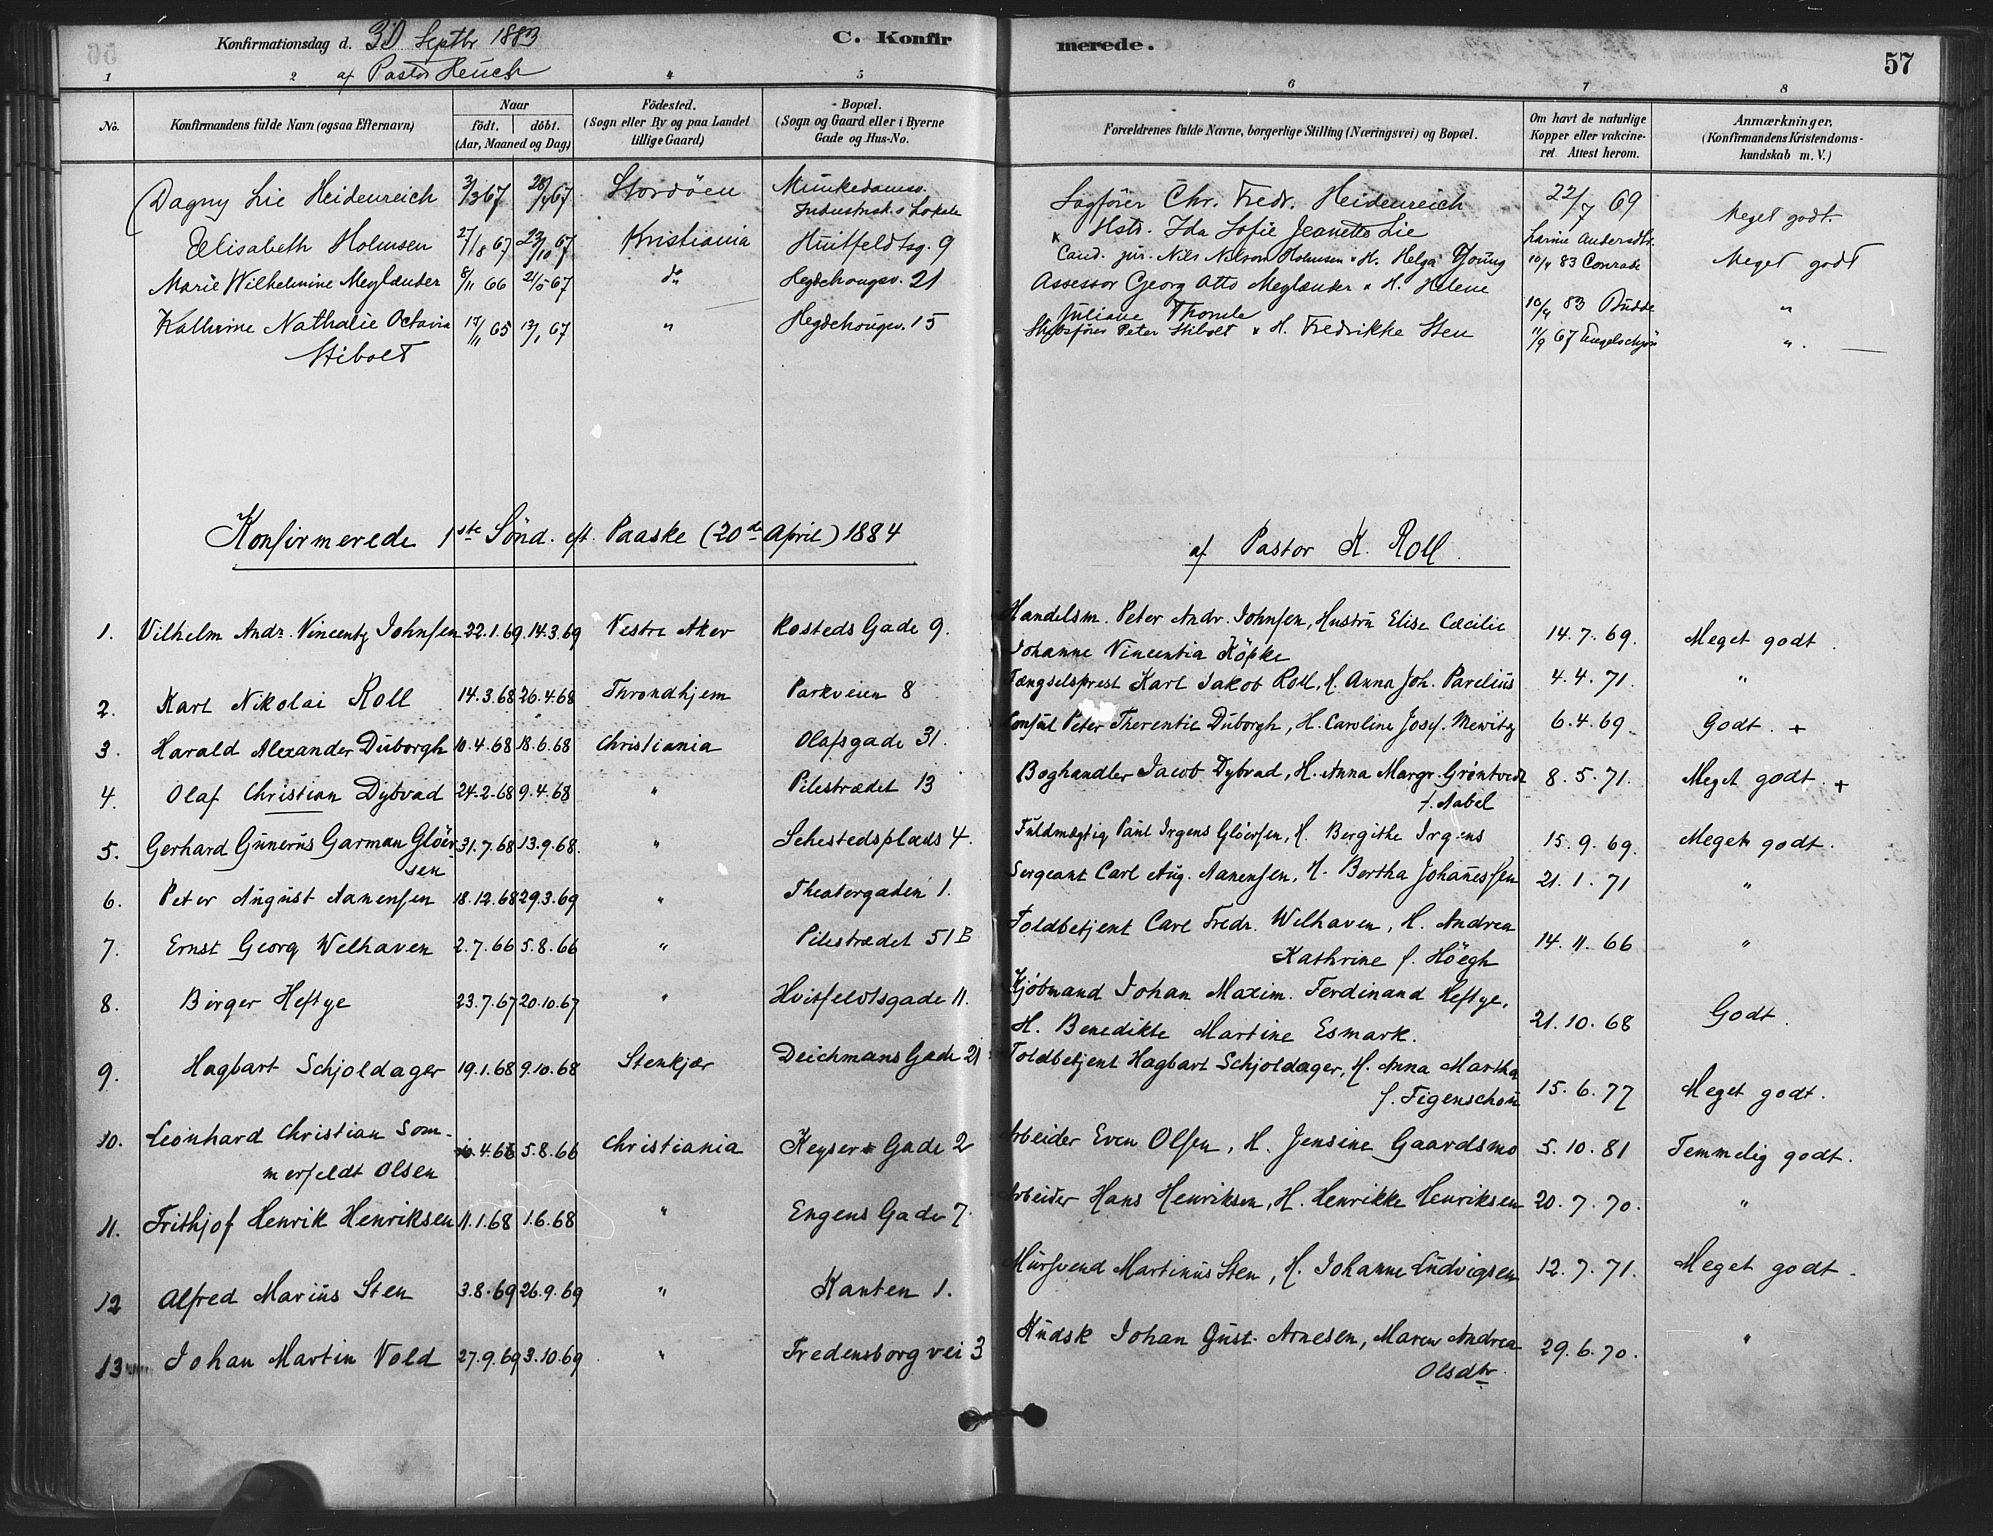 Konfirmationsdag d. 30 Septbr 1883
af Pastor Heuch
C. Konfirmerede.
57
1 2 4 5 6 7 8
No.
Konfirmandens fulde Navn (ogsaa Efternavn)
Naar
födt. döbt.
(Aar, Maaned og Dag)
Födested.
(Sogn eller By og paa Landet
tillige Gaard)
Bopæl.
(Sogn og Gaard eller i Byerne
Gade og Hus-No.
Forældrenes fulde Navne, borgerlige Stilling (Næringsvei) og Bopæl.
Om havt de naturlige
Kopper eller vakcine-
ret Attest herom.
Anmærkninger,
(Konfirmandens Kristendoms-
kundskab m. V.)
Dagny Lie Heidenreich 3/3 67 28/7 67 Stordöen Munkedamsv. Industrisk.s Lokale Sagförer Chr. Fredr. Heidenreich 22/7 69 Meget godt.
Hstr. Ida Sofie Jeanette Lie
Elisabeth Holmsen 27/8 67 23/10 67 Kristiania Huitfeldtsg. 9 Cand. jur. Nils Nilson Holmsen & H. Helga Young 10/4 83 Conradi Meget godt
Marie Wilhelmine Meylænder 8/11 66 21/5 67 do Hegdehougsv. 21 Assessor Georg Otto Meylænder & H. Helene 10/4 83 Budde "
Juliane Thomle
Kathrine Nathalie Octavia 17/11 65 13/1 67 " Hegdehougsv. 15 Skibsförer Peter Stibolt & H. Fredrikke Sten 11/9 67 "
Stibolt
Konfirmerede 1ste Sönd. eft. Paaske (20de April) 1884 af Pastor K. Roll.
1. Vilhelm Andr. Vincentz Johnsen 22.1.69 14.3.69 Vestre Aker Rosteds Gade 9. Handelsm. Peter Andr. Johnsen, Hustru Elise Cæcilie 14.7.69. Meget godt.
Johanne Vincentia Köpke
2. Karl Nikolai Roll 14.3.68 26.4.68 Throndhjem Parkveien 8 Fængselsprest Karl Jakob Roll, H. Anna Joh. Parelius 4.4.71. "
3. Harald Alexander Duborgh 10.4.68 18.6.68 Christiania Olafsgade 31. Consul Peter Therentie Duborgh, H. Caroline Josef. Mewitz 6.4.69. Godt. +
4. Olaf Christian Dybvad 24.2.68 9.4.68 " Pilestrædet 13 Boghandler Jacob Dybvad, H. Anna Margr. Gröntvedt 8.5.71. Meget godt. +
f. Aabel
5. Gerhard Gunerus Garman Glöer- 31.7.68 13.9.68. " Sehestedsplads 4. Fuldmægtig Paul Irgens Glöersen, H. Bergithe Irgens 15.9.69. Meget godt.
sen
6. Peter August Aanensen 18.12.68 29.3.69 " Theatergaden 1. Sergeant Carl Aug. Aanensen, H. Bertha Johanessen 21.1.71 "
7. Ernst Georg Welhaven 2.7.66 5.8.66 " Pilestrædet 51 B Toldbetjent Carl Fredr. Welhaven, H. Andrea 14.11.66 "
Kathrine f. Höegh
8. Birger Heftye 23.7.67 20.10.67 " Hvitfeldtsgade 11. Kjöbmand Johan Maxim. Ferdinand Heftye, 21.10.68 Godt.
H. Benedikte Martine Esmark.
9. Hagbart Schjoldager 19.1.68 9.10.68 Stenkjær Deichmans Gade 21 Toldbetjent Hagbart Schjoldager, H. Anna Martha 15.6.77 Meget godt.
f. Figenschou
10. Leonhard Christian Som- 4.66 5.8.66 Christiania Keysers Gade 2 Arbeider Even Olsen, H. Jensine Gaardsmo 5.10.81 Temmelig godt.
merfeldt Olsen
11. Frithjof Henrik Henriksen 11.1.68 1.6.68 " Engens Gade 7. Arbeider Hans Henriksen, H. Henrikke Henriksen 20.7.70. "
12 Alfred Marius Sten 3.8.69 26.9.69 " Kanten 1. Mursvend Martinus Sten, H. Johanne Ludvigsen 12.7.71. Meget godt.
13 Johan Martin Vold 27.9.69 3.10.69 " Fredensborgvei 3 Kudsk Johan Gust. Arnesen, Maren Andrea 29.6.70. "
Olsdtr.